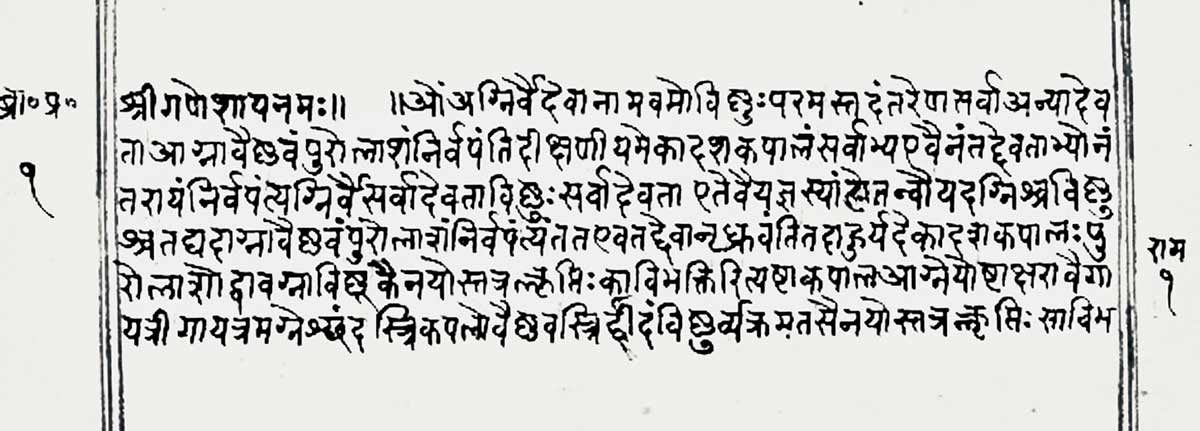 ब्रा॰ प्र॰
१
श्रीगणेशायनमः॥ ॥ओं अग्निर्वैदेवानामवमोविष्णुःपरमस्तदंतरेणसर्वाअन्यादेव
ताआग्नावैष्णवंपुरोलाशंनिर्वपंतिदीक्षणीयमेकादशकपालंसर्वाभ्यएवैनंतद्देवताभ्योनं
तरायंनिर्वपंत्यग्निर्वैसर्वादेवताविष्णुःसर्वादेवता एतेवैयज्ञस्यांत्येतन्वौयदग्निश्चविष्णु
श्चतद्यदाग्नावैष्णवंपुरोलाशंनिर्वपंत्यंततएवतद्देवानृध्नुवंतितदाहुर्यदेकादशकपालःपु
रोलाशोद्वावग्नाविष्णूकैनयोस्तत्रक्लृप्तिःकाविभक्तिरित्यष्टाकपालआग्नेयोष्टाक्षरावैगा
यत्रीगायत्रमग्नेश्छंद स्त्रिकपालोवैष्णवस्त्रिर्हीदंविष्णुर्व्यक्रमतसैनयोस्तत्रक्लृप्तिः साविभ
राम
१